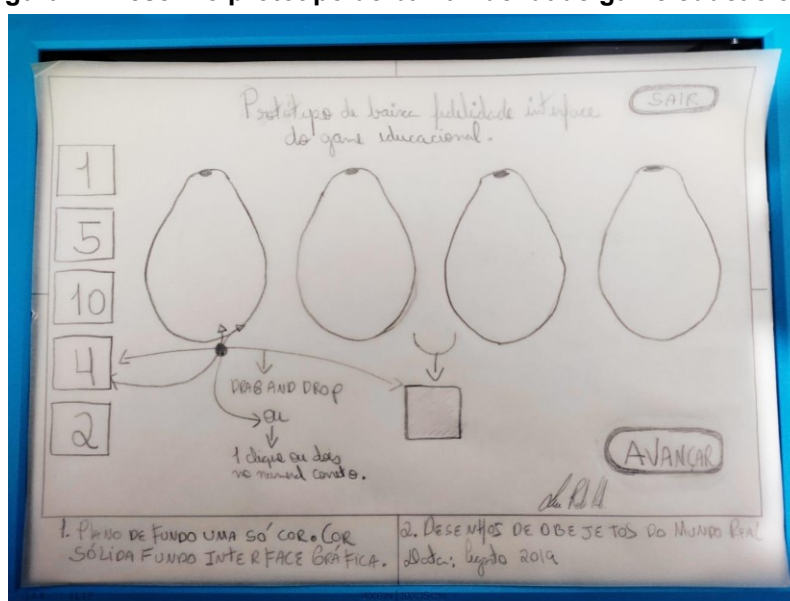 Protótipo de baixa fidelidade interface
do game educacional.
SAIR
1
5
10
4
2
DRAG AND DROP
ou
1 clique ou dois
no numeral correto.
AVANÇAR
1. PLANO DE FUNDO UMA SÓ COR. COR
SÓLIDA FUNDO INTERFACE GRÁFICA.
2. DESENHOS DE OBEJETOS DO MUNDO REAL
Data: Agosto 2019